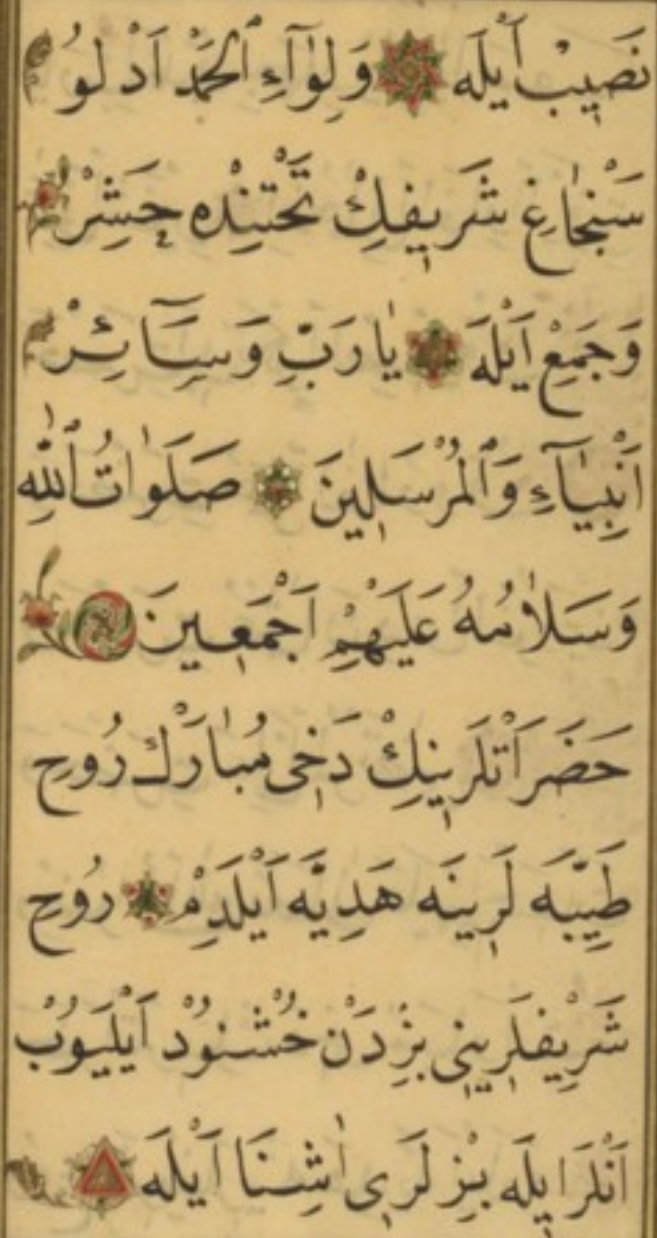 نَصِيبْ اَيْلَه وَلِوَٓاءِ الْحَمْدْ اَدْلُو
سَنْجَاغِ شَرِيفِكْ تَحْتِنْدَه حَشِرْ
وَجَمِعْ اَيْلَه يَا رَبِّ وَسَٓائِرْ
اَنْبِيَٓاءِ وَالْمُرْسَلِينَ صَلَوَاتُ اللّٰهِ
وَسَلَامُهُ عَلَيْهِمْ اَجْمَعِينَ
حَضَرَاتْلَرِينِكْ دَخِى مُبَارَكْ رُوحِ
طَيِّبَه لَرِينَه هَدِيَّه اَيْلَدِمْ رُوحِ
شَرِيفْلَرِينِى بِزْدَنْ خُشْنُودْ اَيْلَيُوبْ
اَنْلَرَ اِيلَه بِزْلَرِى اٰشِنَا اَيْلَه